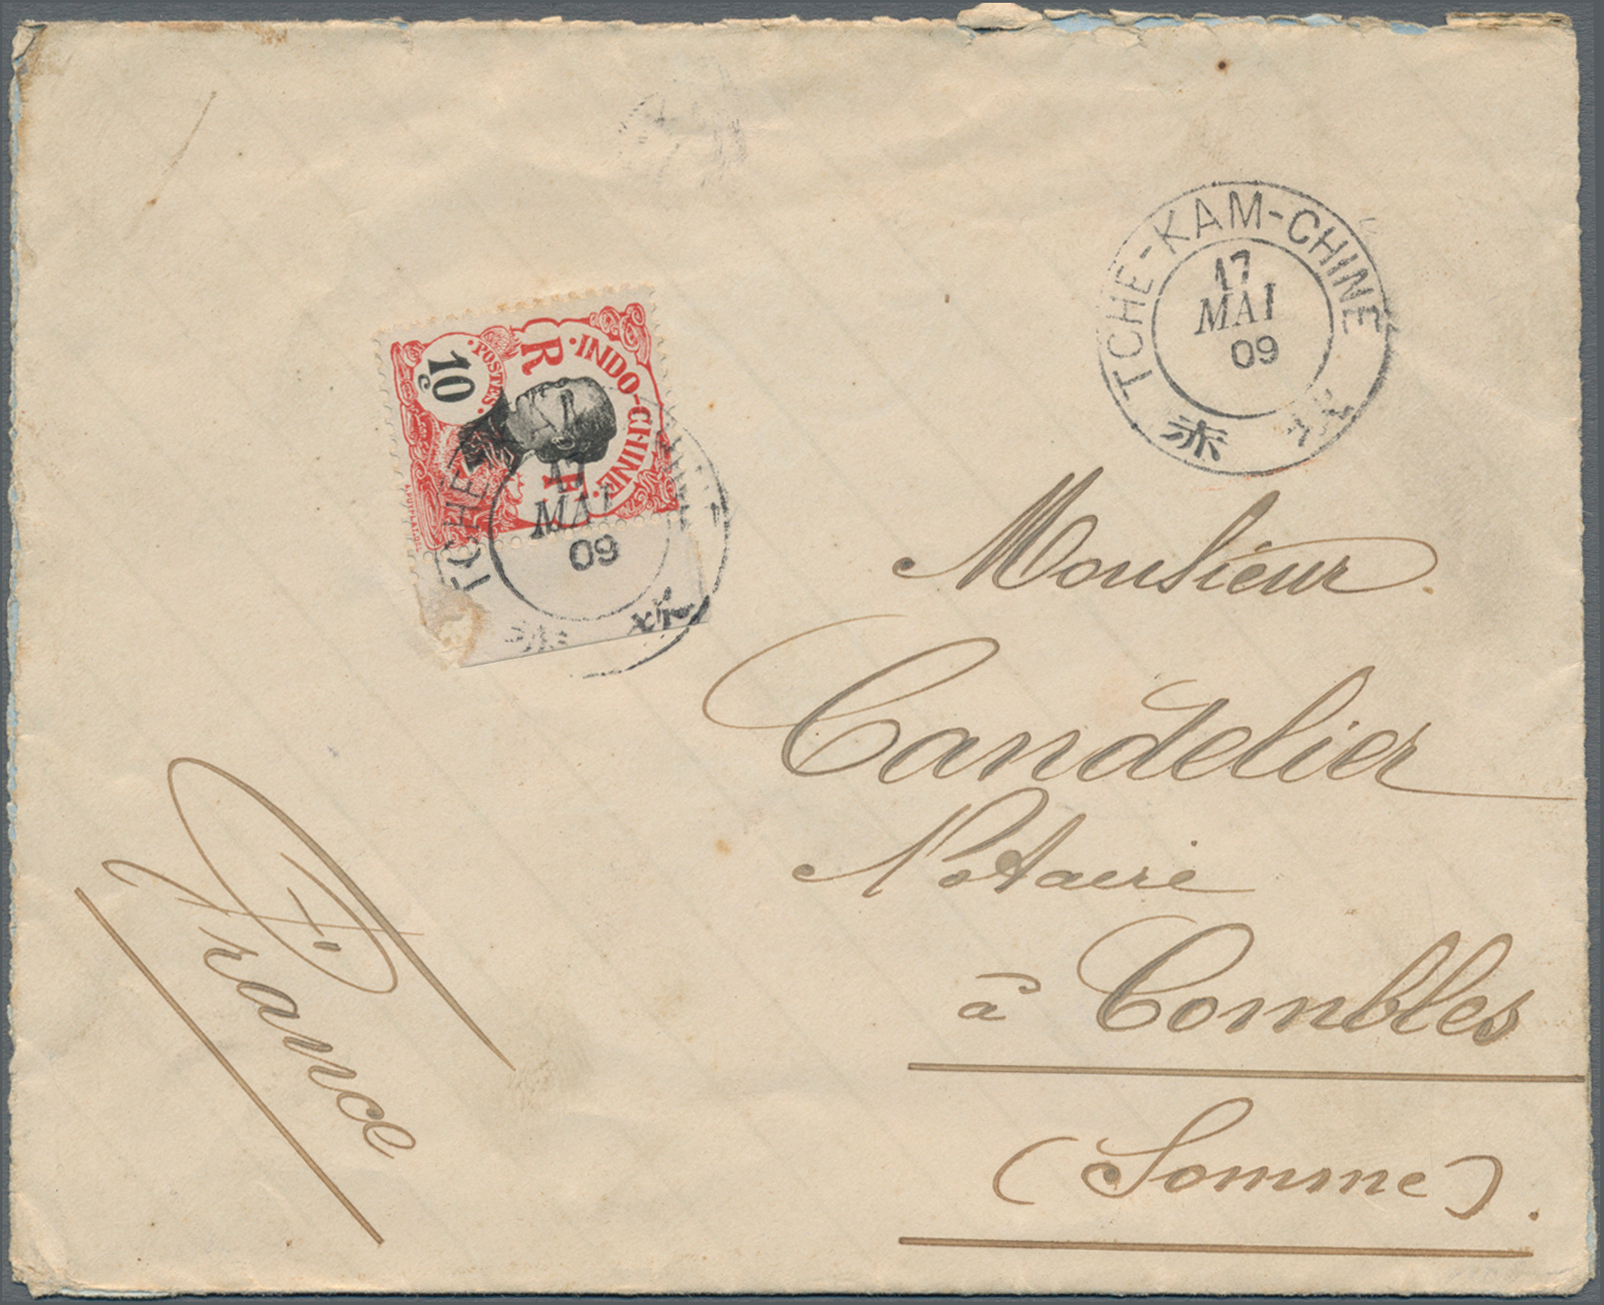 TCHE-KAM-CHINE
17
MAI
09
赤 坎
INDO-CHINE
R F
POSTES
10
c
TCHE
17
MAI
09
坎
Monsieur
Candelier
Notaire
à Combles
(Somme).
France